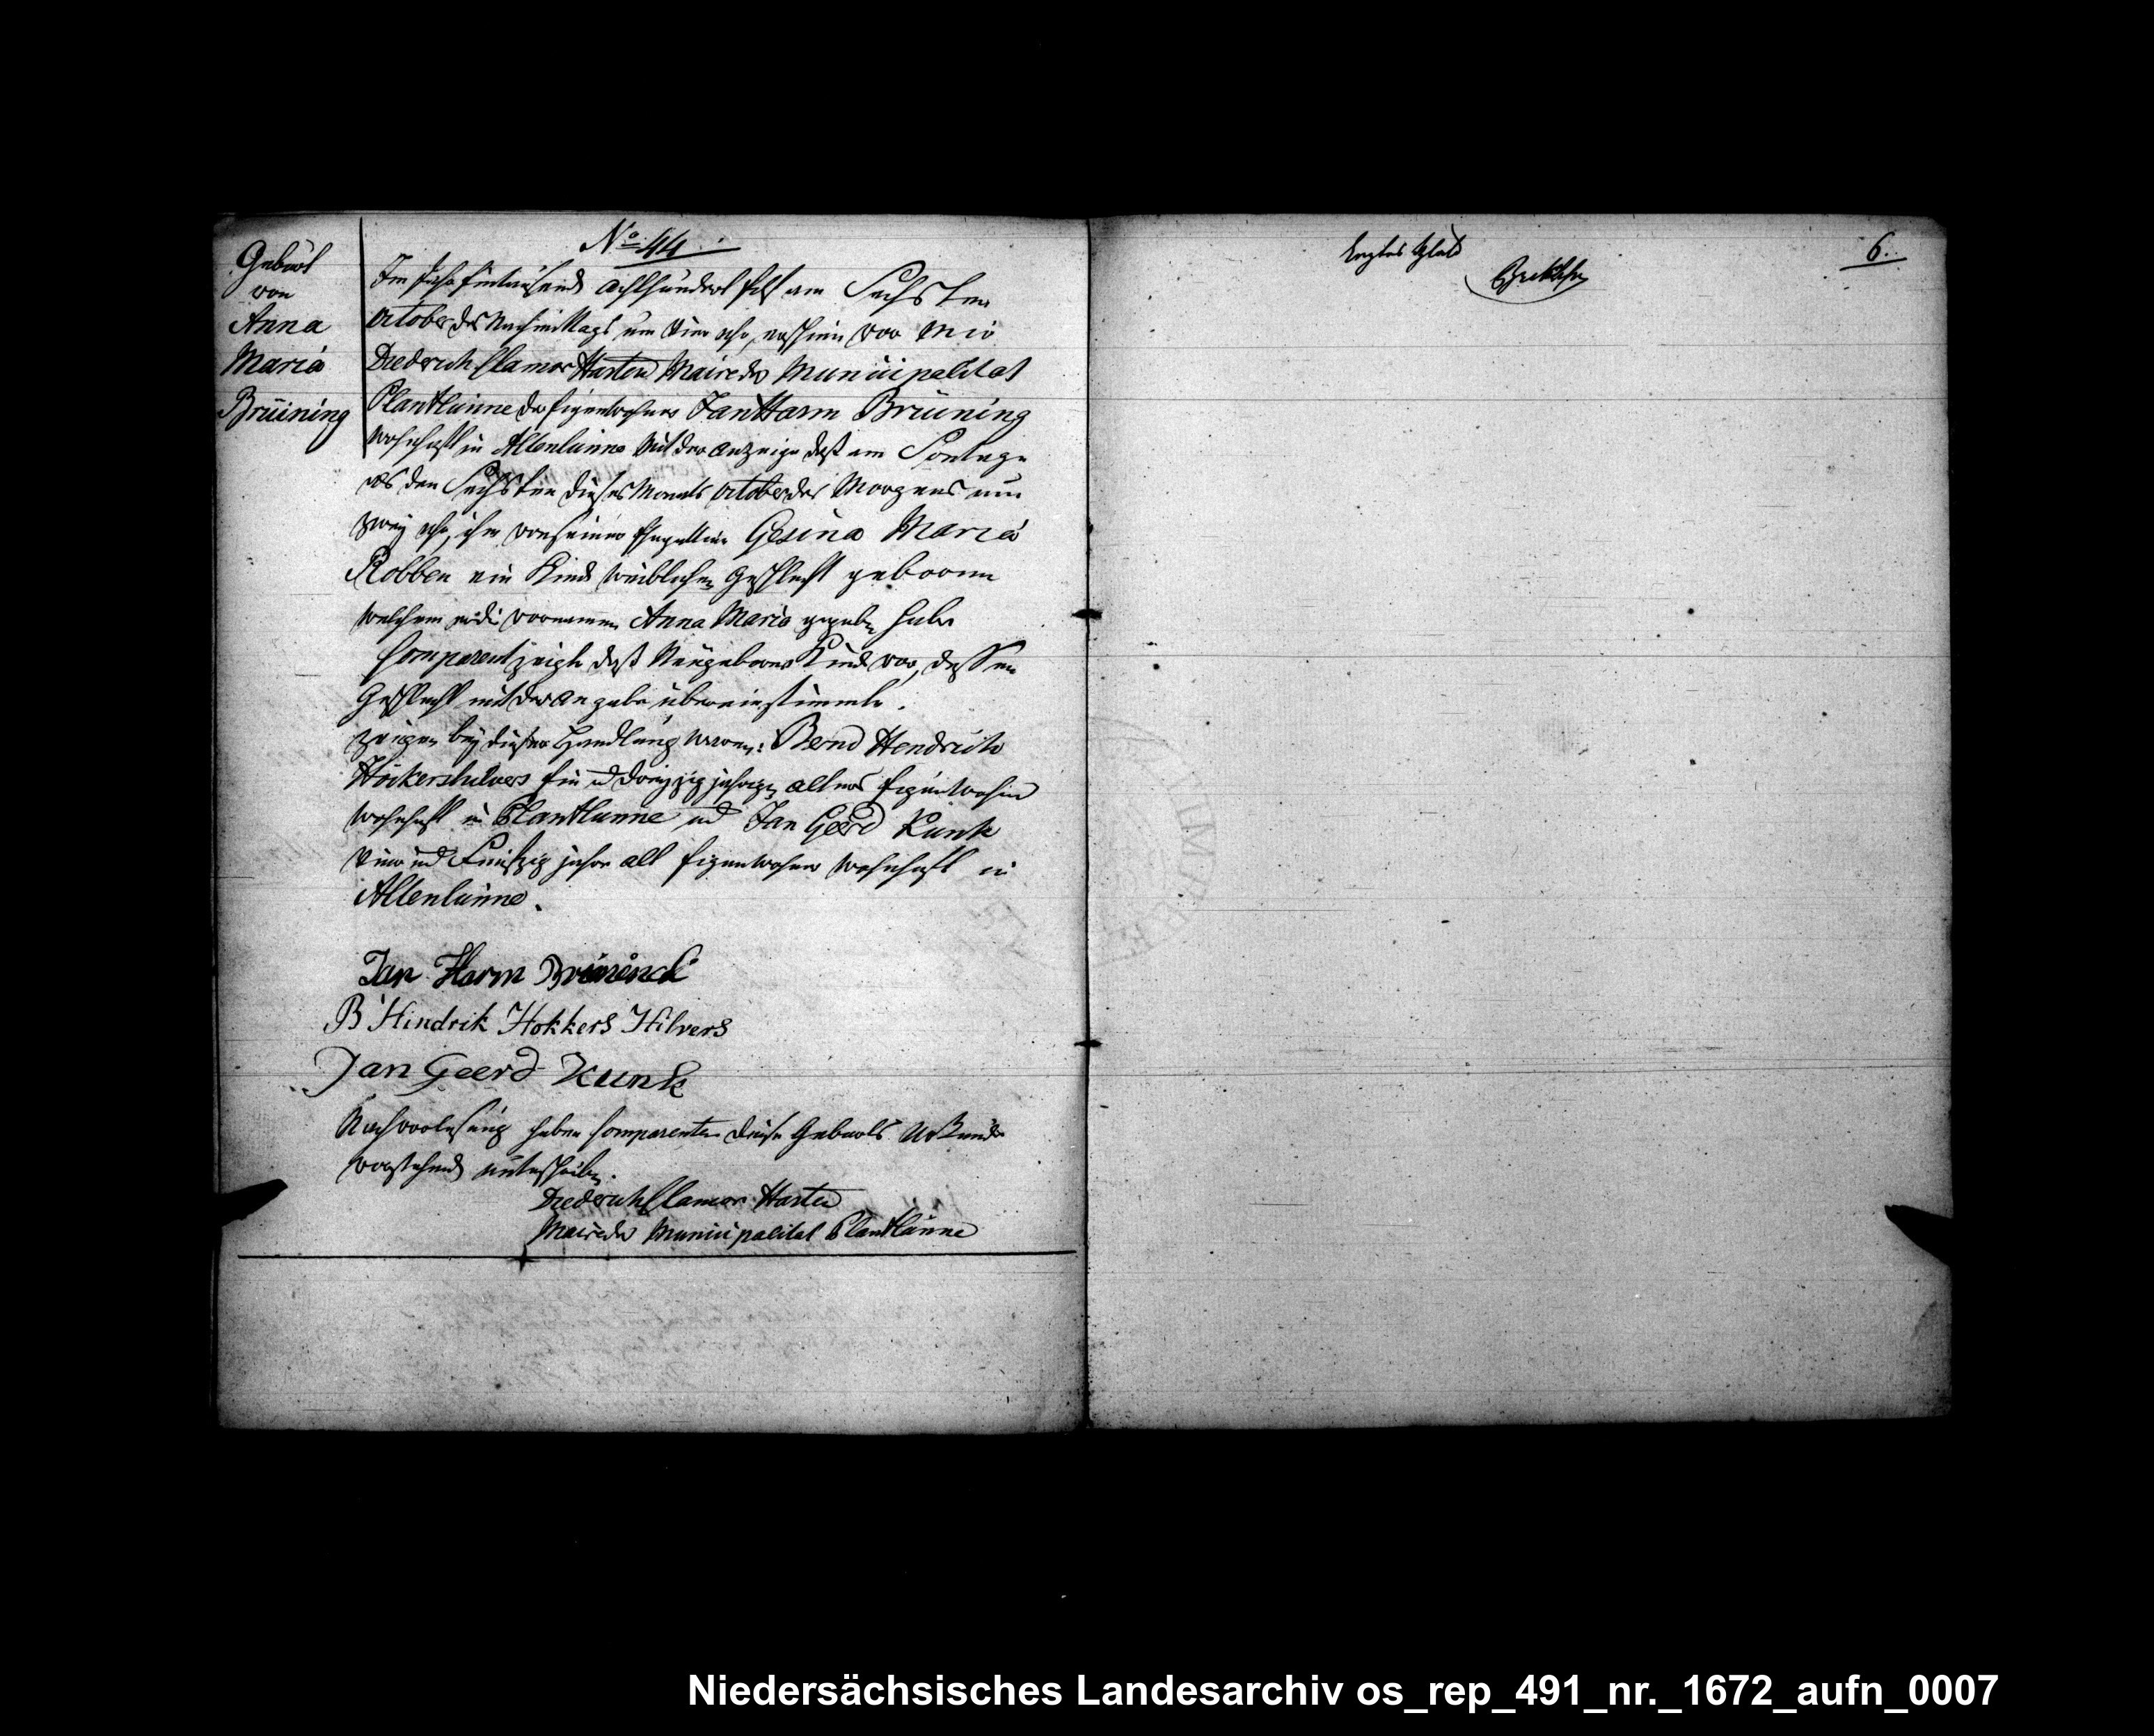 Geburt
von
Anna
Maria
Brüning
No 44.
Im Jahr Eintausend achthundert Elf am Sechsten
October des Nachmittags um Vier Uhr, erschien vor mir
Diederich Clamor Harten Maire der Municipalitat
Plantlünne der Eigenwohner Jan Harm Brüning
wohnhaft in Altenlünne Mit der anzeige daß am Sontage
als den Sechsten dieses Monats October des Morgens um
zwey Uhr, ihm von seiner Ehegattin Gesina Maria
Robben ein Kind weiblichen Geschlecht geboren
welchem er die vornamen Anna Maria gegeben habe
Comparent zeigte daß Neugeborne Kind vor, dessen
Geschlecht mit der angabe übereinstimmte.
Zeugen bey dieser Handlung waren: Bernd Hendrich
Höckershilvers Ein u dreyzig jahrigen alters Eigenwohner
wohnhaft in Plantlünne und Jan Geerd Kunk
Vier und Funfzig jahre alt Eigenwohner wohnhaft in
Altenlünne.
Jan Harm Brüninck
B Hindrik Hokkers Hilvers
Jan Geerd Kunk
Nach vorlesung haben Comparenten diese Geburts Urkunde
vorstehend unterschrieben.
Diederich Clamor Harten
Maire der Municipalitat Plantlünne
Leztes Blatt
6.
Niedersächsisches Landesarchiv os_rep_491_nr._1672_aufn_0007